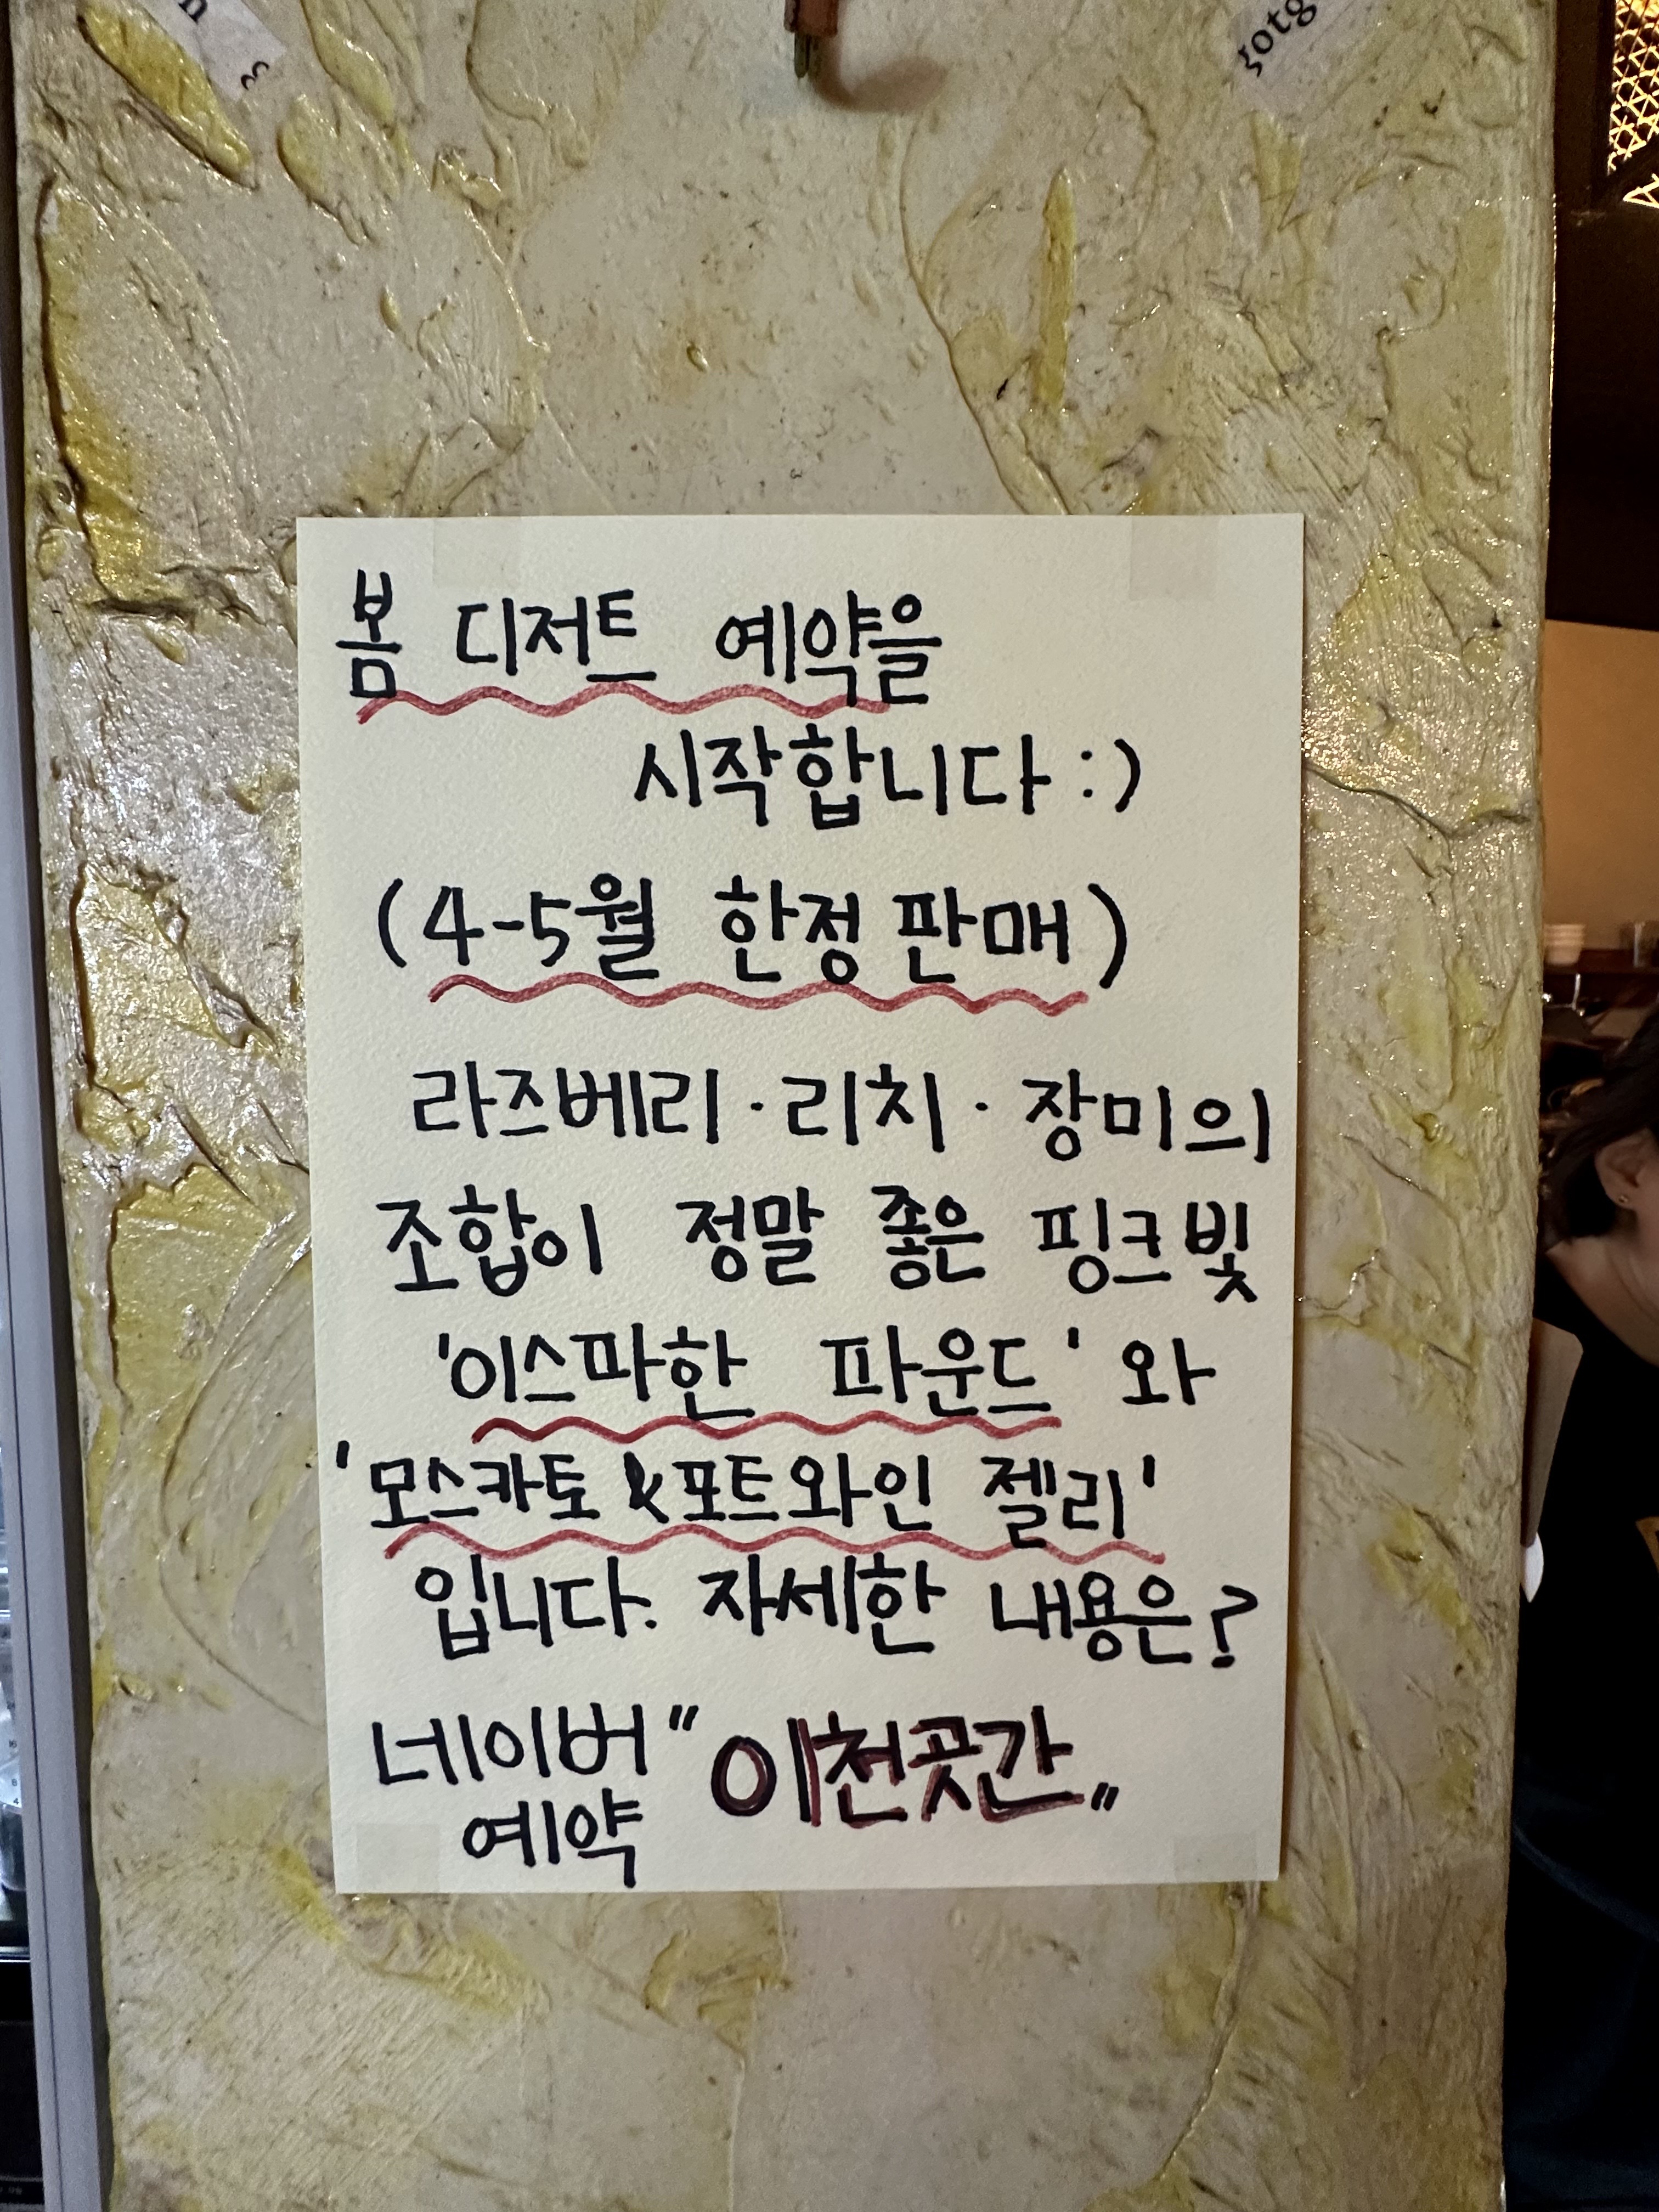 봄 디저트 예약을
시작합니다 :)
(4-5월 한정 판매)
라즈베리 · 리치 · 장미의
조합이 정말 좋은 핑크빛
'이스파한 파운드' 와
'모스카토 & 포트와인 젤리'
입니다. 자세한 내용은?
네이버 "이천곳간"
예약